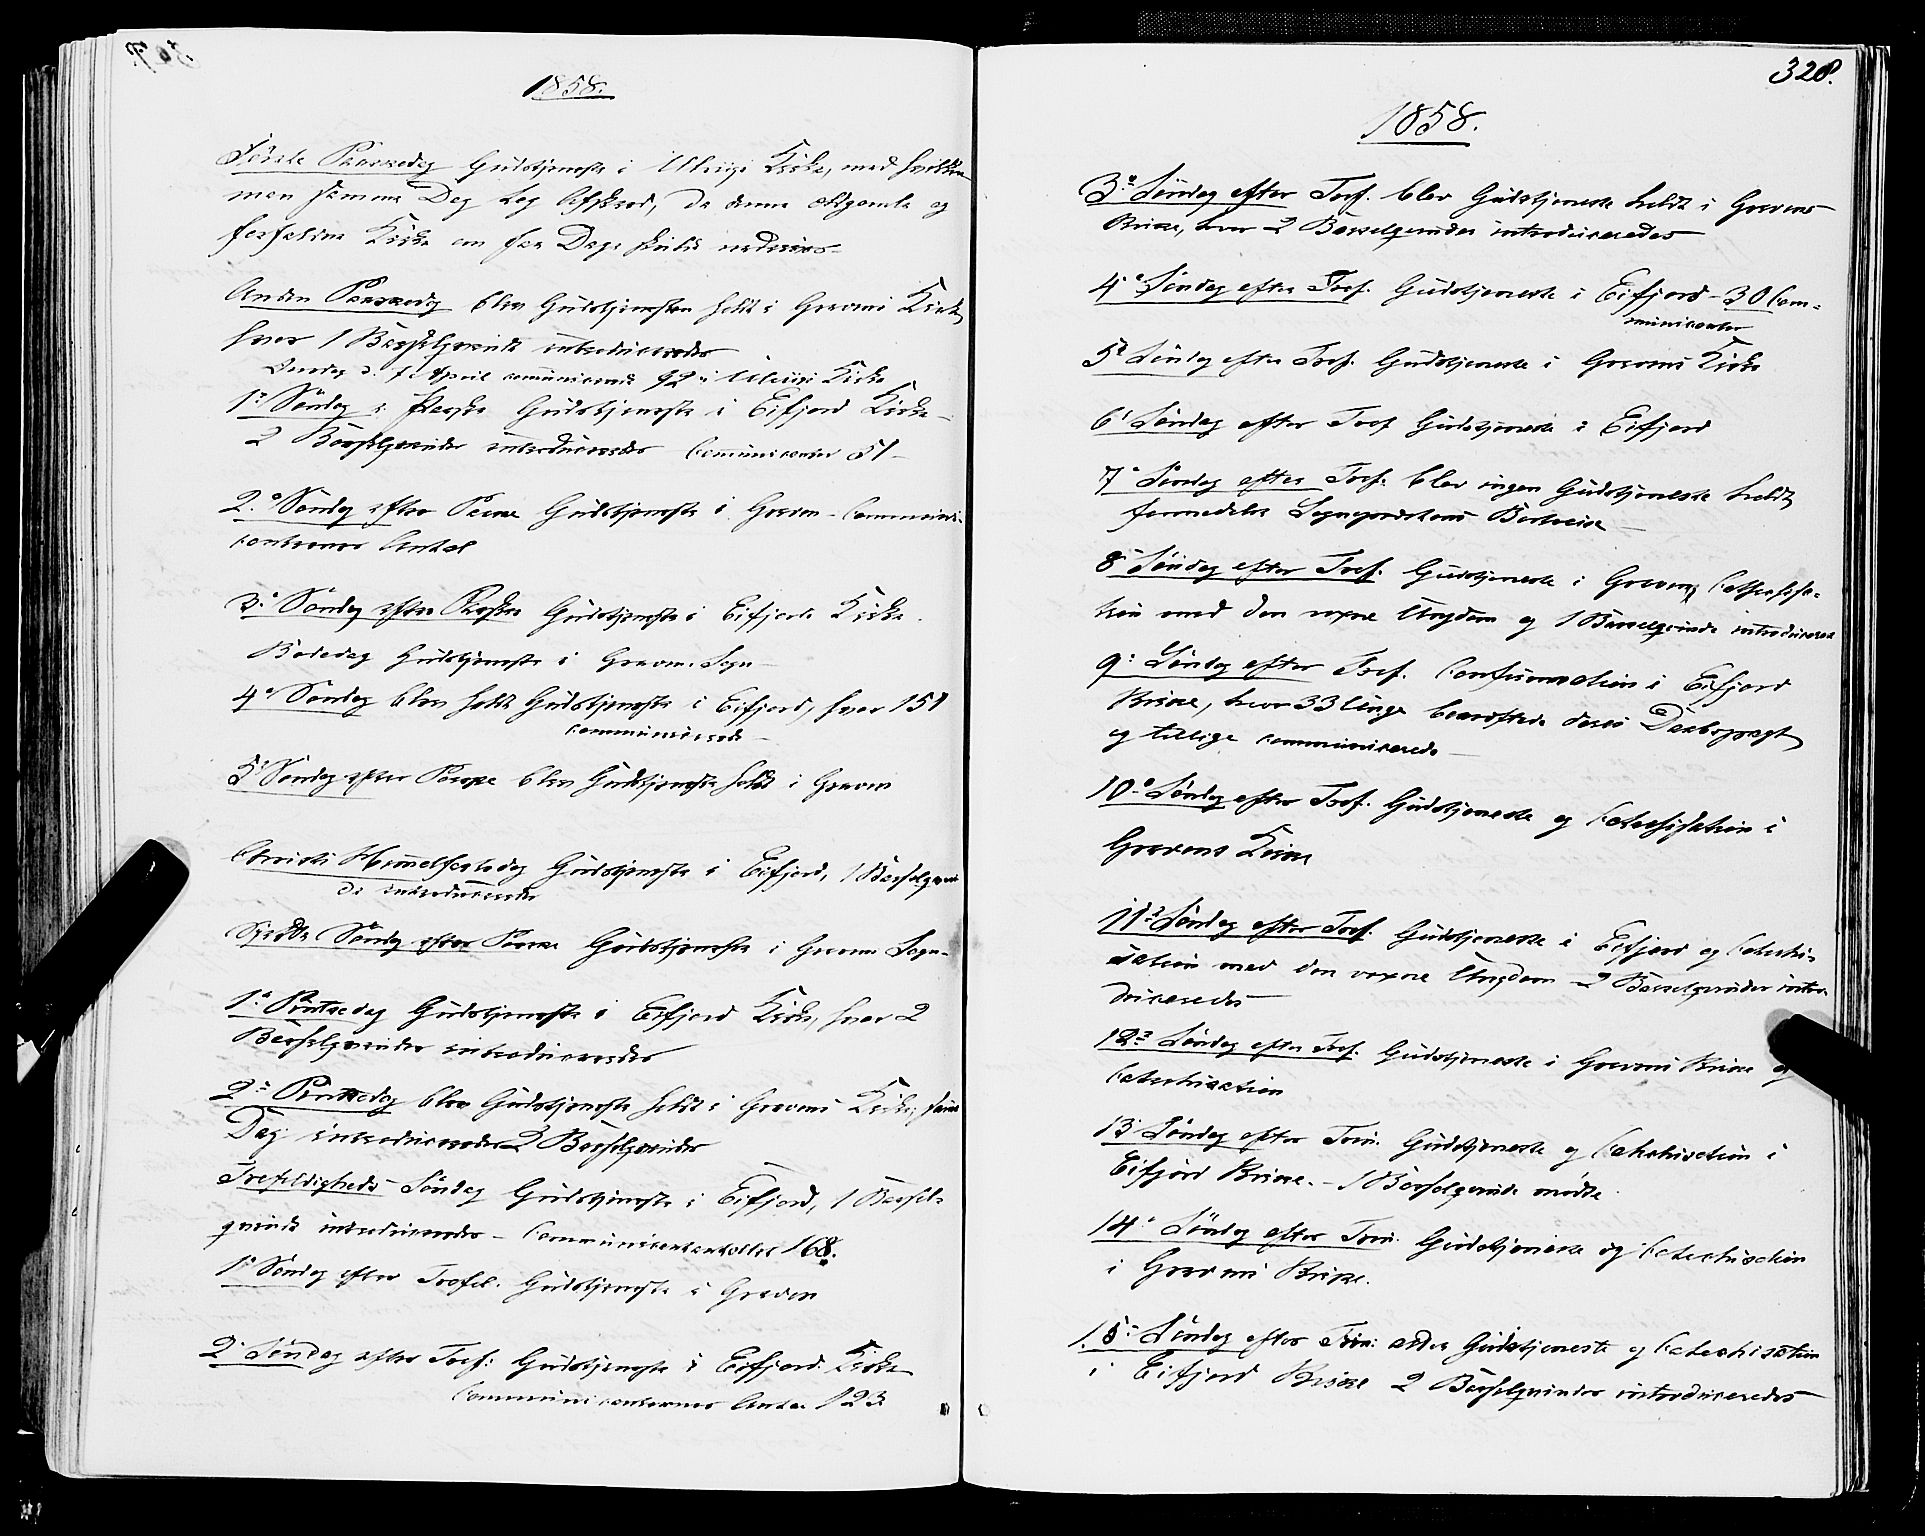 1858.
Første Paaskedag Gudstjeneste i Ulvigs Kirke, med hvilken
man samme Dag tog Afsked, da denne ældgamle og
forfaldne Kirke om faa Dage skulde nedrives
Anden Paaskedag blev Gudstjenesten holdt i Gravens Kirke,
hvor 1 Barselqvinde introduceredes
Onsdag d. 7 April communicerede 92 i Ulvigs Kirke
1ste Søndag e. Paaske Gudstjeneste i Eifjord Kirke
2 Barselqvinder introduceredes Communicanter 51
2. Søndag efter Paaske Gudstjeneste i Graven - Communi-
canternes Antal
3. Søndag efter Paaske Gudstjeneste i Eifjords Kirke.
Bededag Gudstjeneste i Gravens Sogn
4. Søndag blev holdt Gudstjeneste i Eifjord, hvor 151
communicerede
5 Søndag efter Paaske blev Gudstjeneste holdt i Graven
Christi Himmelfartsdag Gudstjeneste i Eifjord, 1 Barselqvin-
de introduceredes
Sjette Søndag efter Paaske Gudstjeneste i Gravens Sogn
1. Pintsedag Gudstjeneste i Eifjord Kirke, hvor 2
Barselqvinder introduceredes
2. Pintsedag blev Gudstjeneste holdt i Gravens Kirke, samme
Dag introduceredes 2 Barselqvinder
Trefoldigheds Søndag Gudstjeneste i Eifjord, 1 Barsel-
qvinde introduceredes - Communicantantallet 168.
1. Søndag efter Trefol. Gudstjeneste i Graven
2. Søndag efter Tref: Gudstjeneste i Eifjord Kirke
Communicanternes Antal 123
328.
1858.
3. Søndag efter Tref. blev Gudstjeneste holdt i Gravens
Kirke, hvor 2 Barselqvinder introduceredes
4. Søndag efter Tref. Gudstjeneste i Eifjord - 30 Com-
municanter
5 Søndag efter Tref. Gudstjeneste i Gravens Kirke
6 Søndag efter Tref Gudstjeneste i Eifjord
7. Søndag efter Tref. blev ingen Gudstjeneste holdt,
formedelst Sognepræstens Bortreise
8. Søndag efter Tref. Gudstjeneste i Graven, Cathechisa-
tion med den voxne Ungdom og 1 Barselqvinde introduceret
9. Søndag efter Tref. Confirmation i Eifjord
Kirke, hvor 33 Unge bekræftede deres Daabspagt
og tillige communicerede
10. Søndag efter Tref. Gudstjeneste og Catechisation i
Gravens Kirke
11. Søndag efter Tref. Gudstjeneste i Eifjord og Catechi-
sation med den voxne Ungdom - 2 Barselqvinder intro-
duceredes
12. Søndag efter Tref. Gudstjeneste i Gravens Kirke og
Catechisation
13 Søndag efter Trin. Gudstjeneste og Catechisation i
Eifjord Kirke. - 1 Barselqvinde mødte
14. Søndag efter Trin. Gudstjeneste og Catechisation
i Gravens Kirke.
15. Søndag efter Trin: Gudstjeneste og Catechisation
i Eifjord Kirke 2 Barselqvinder introduceredes